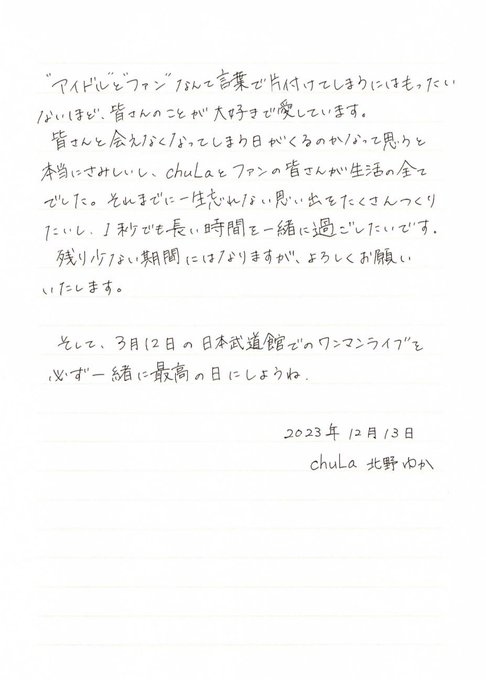 "アイドル"と"ファン"なんて言葉で片付けてしまうにはもったい
ないほど、皆さんのことが大好きで愛しています。
皆さんと会えなくなってしまう日がくるのかなって思うと
本当にさみしいし、chuLaとファンの皆さんが生活の全て
でした。それまでに一生忘れない思い出をたくさんつくり
たいし、1秒でも長い時間を一緒に過ごしたいです。
残り少ない期間にはなりますが、よろしくお願い
いたします。
そして、3月12日の日本武道館でのワンマンライブを
必ず一緒に最高の日にしようね.
2023年12月13日
chuLa 北野ゆか